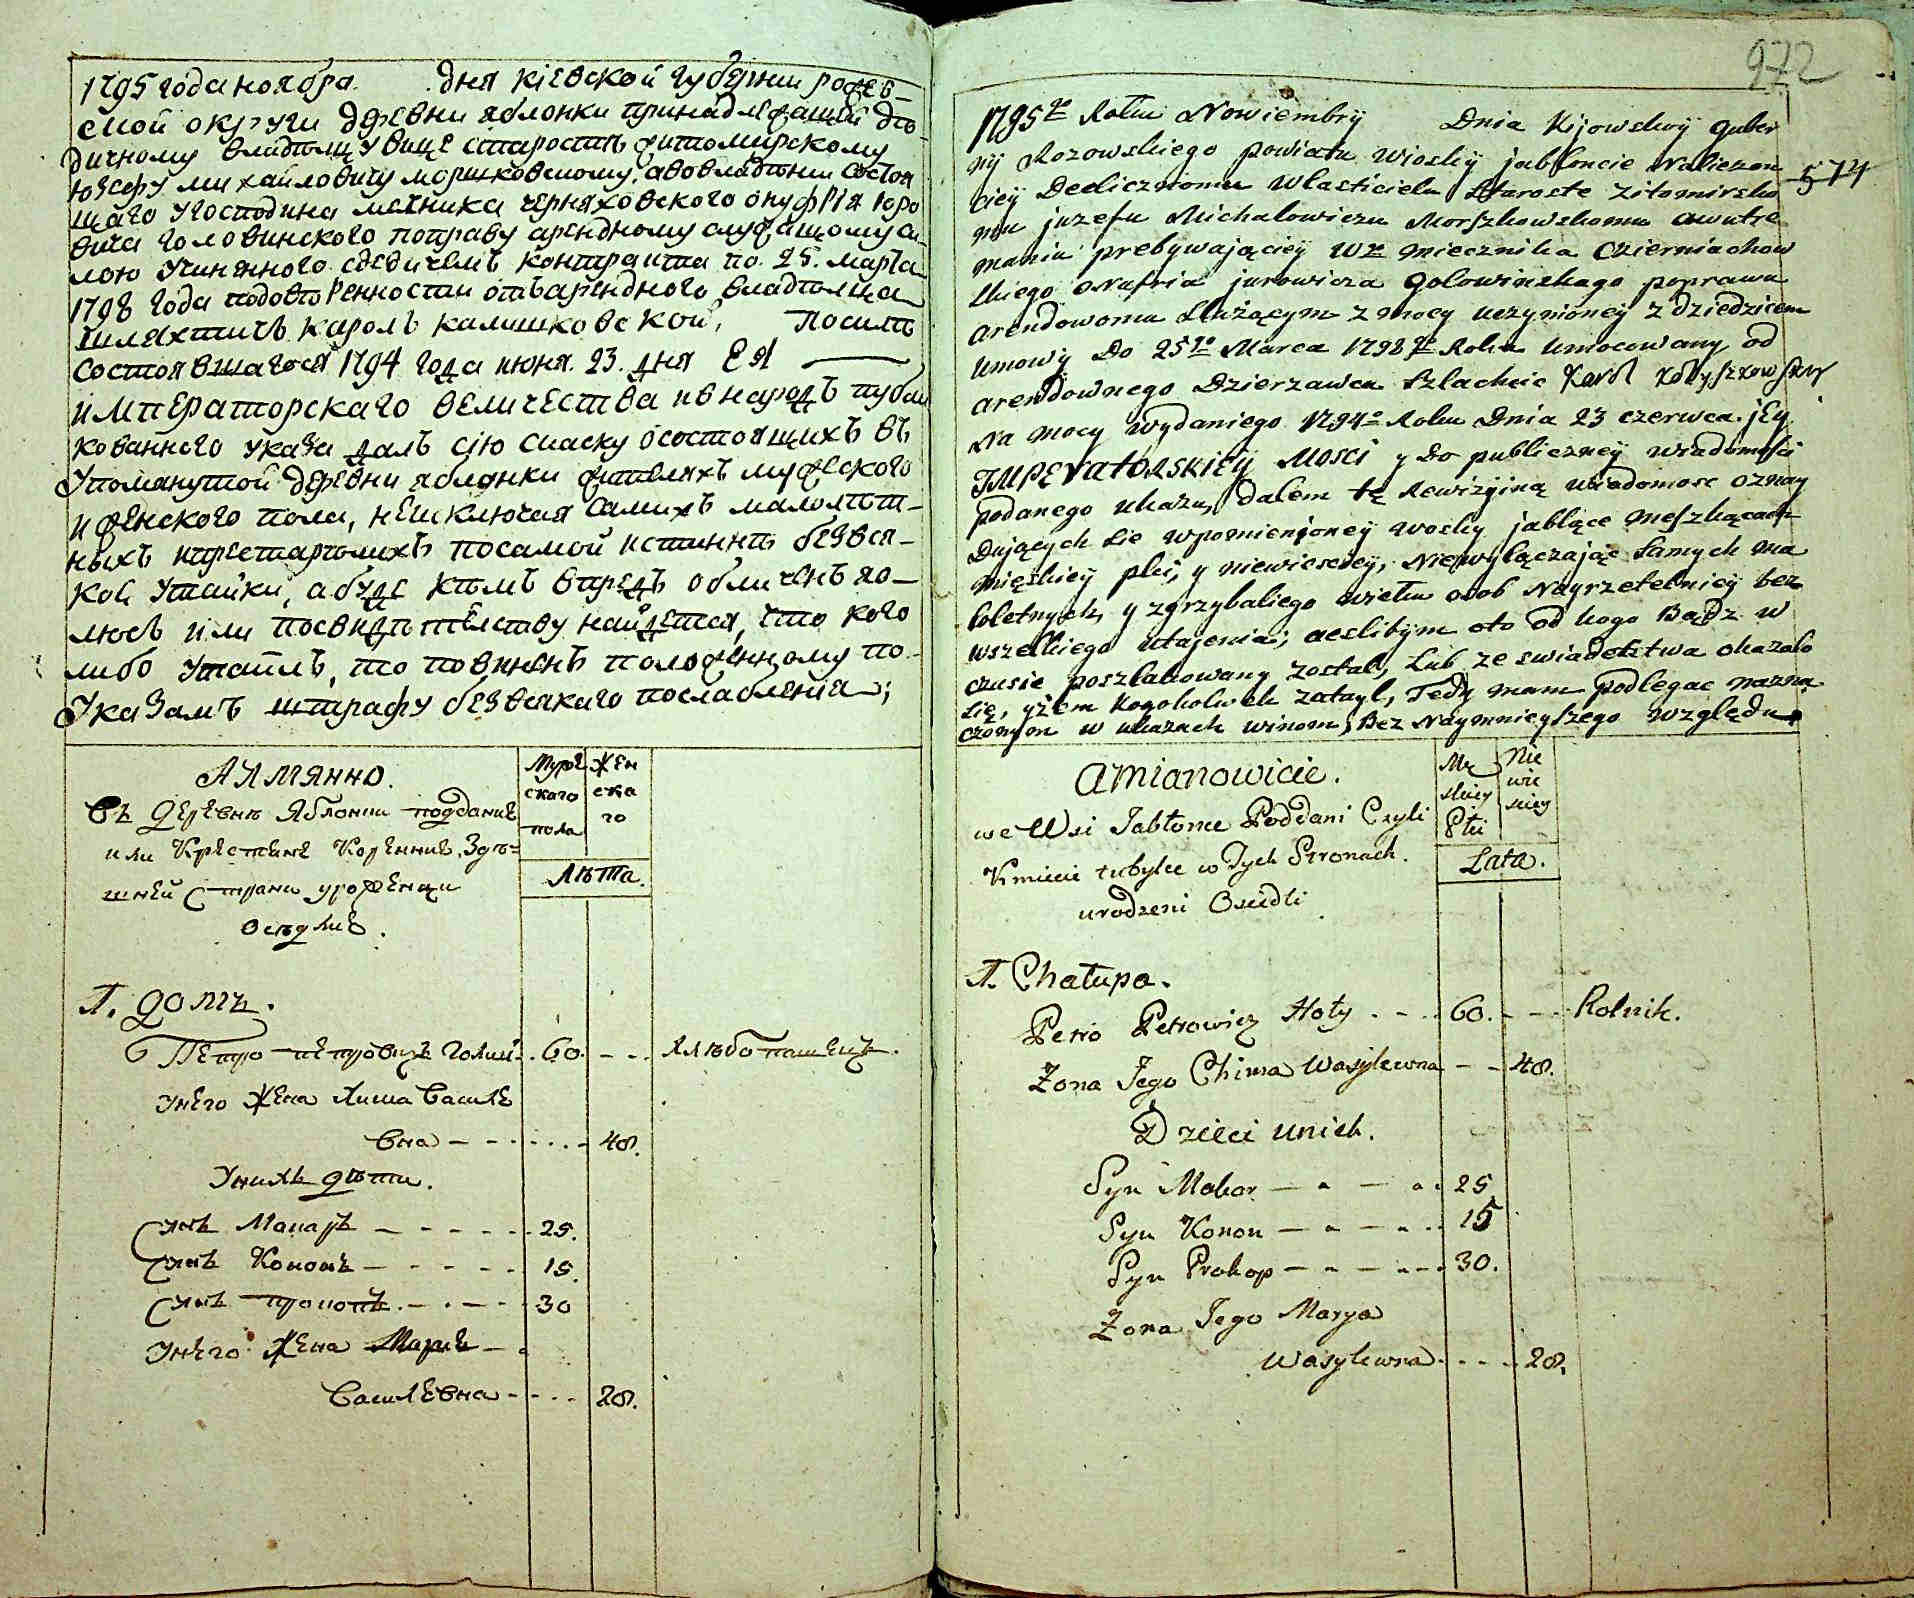 1795 года ноября дня кіевской губернии рожев-
ской округи деревни яблонки принадлежащей дѣ-
дичному владѣлцу вице старостѣ житомирскому
юзефу михайловичу моршковскому, авовладѣнии состоя
щаго угосподина мечника черняховского онуфрія юро
вича головинского поправу арендному служащому си-
лою учиненного сдедичемъ контракта по 25. марта
1798 года подовѣренности отъ арендного владѣлца
шляхтичъ кароль калишковской, Посилѣ
состоявшагося 1794 года июня. 23. дня ЕЯ
императорскаго величества ивнародъ публи
кованного указа далъ сію сказку осостоящихъ въ
упомянутой деревни яблонки жителяхъ мужеского
и женского пола, неисключая самихъ малолѣт-
ныхъ ипрестарѣлихъ посамой истиннѣ безвся-
кой утайки, абуде кѣмъ впредъ обличенъ яв-
люсъ или посвидѣтелству найдется, что кого
либо утаилъ, то повиненъ положенному по
указамъ штрафу безвсякаго послабленія;
Аимянно.
Въ деревнѣ Яблонки поддание
или Крестяне Коренние, здѣ-
шней Страни уроженци
осѣдлие.
Муже
скаго
пола
Жен
ска
го
Лѣта.
1. домъ.
Петро петровичъ голий . 60. - - . Хлѣбопашецъ.
Унего Жена Хима Василе
вна - - - . . . - 48.
Унихъ дѣти.
Синъ Макаръ - - - - - 25.
Синъ Кононъ - - - - - 15.
Синъ прокопъ. - . - - 30
Унего Жена Марія -
Василевна - - - - 28.
972
574
1795го Roku Nowiembry Dnia Kijowskiy guber
nij Rozowskiego powiatu wioski jabłoncie Nalieżon
ciey Dedicznomu Własticielu Staroste Zitomirsko
mu juzefu Michałowiczu Morszkowskomu awutre
maniu prebywaiąciey w miecznika Czierniachow
skiego onufria jurowicza gołowinskago poprawu
arendowomu służącym z mocy uczynioney z dziedzicem
umowy Do 25go Marca 1798 Roku umocowany od
arendownego Dzierzawcu szlachcic Karol Kołyszkowskiy
Na mocy wydaniego 1794o Roku Dnia 23 czerwca. jEy
IMPEratorskiEy Mosci y do publiczney wiadomości
podanego ukazu, dałem tę Rewizyiną wiadomość oznay
duiących sie wpomienioney wioski jabłące meszkącach
męskiey płci, y niewiescey, Niewyłączaiąc Samych ma
łoletnych y zgrzybałiego wieku osob Nayrzetelniey bez
wszelkiego utajenia; aeslibym oto od kogo Bądz w
czasie poszlakowany został, Lub ze swiadectwa okazało
się, yżem kogokolwek zataył, Tedy mam podlegac nazna
czonym w ukazach winom, Bez Naymnieyszego względu.
amianowicie.
we Wsi Jabłonce Poddani Czyli
Kmiecie tubylce w Tych Stronach
urodzeni Osiedli
Mę
skiey
Płci
Nie
wie
sciey
Lata.
1. Chałupa.
Petro Petrowicz Hoły . . - . 60. - - - Rolnik.
Żona Jego Chima Wasylewna - - 48.
Dzieci unich.
Syn Makar - - - - 25
Syn Konon - - - - 15
Syn Prokop - - - - - 30.
Żona Jego Marya
Wasylewna . - - - 28.